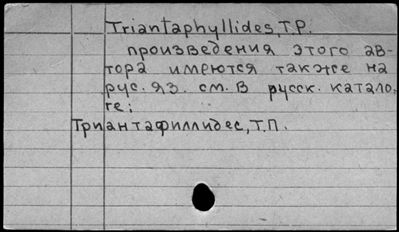 Triantaphyllides, T.P.
произведения этого ав-
тора имеются также на
рус. яз. см. в русск. катало-
ге:
Триантафиллидес, Т.П.